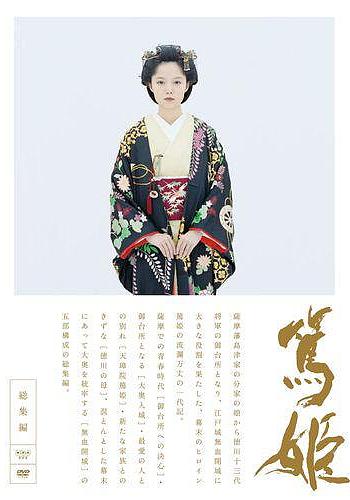 篤姫
薩摩藩島津家の分家の娘から徳川十三代
将軍の御台所となり、江戸城無血開城に
大きな役割を果たした、幕末のヒロイン
篤姫の波瀾万丈の一代記。
薩摩での青春時代［御台所への決心］・
御台所となる［大奥入城］・最愛の人と
の別れ［天璋院篤姫］・新たな家族との
きずな［徳川の母］、混とんとした幕末
にあって大奥を統率する［無血開城］の
五部構成の総集編。
総集編
DVD